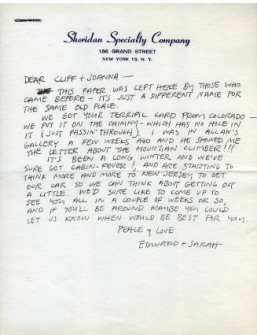 Sheridan Specialty Company
186 GRAND STREET
NEW YORK 13, N. Y.
DEAR CLIFF + JOANNA -
THIS PAPER WAS LEFT HERE BY THOSE WHO
CAME BEFORE - IT'S JUST A DIFFERENT NAME FOR
THE SAME OLD PLACE.
WE GOT YOUR TERRIAL CARD FROM COLORADO -
WE PUT IT ON THE CHIMNY - WHICH HAS NO HOLE IN
IT (JUST PASSIN' THROUGH). I WAS IN ALLAN'S
GALLERY A FEW WEEKS AGO AND HE SHOWED ME
THE LETTER ABOUT THE MOUNTIAN CLIMBER!!!
IT'S BEEN A LONG, WINTER AND WE'VE
SURE GOT CABIN-FEVER, AND ARE STARTING TO
THINK MORE AND MORE TO NEW JERSEY TO GET
OUR CAR SO WE CAN THINK ABOUT GETTING OUT
A LITTLE. WE'D SURE LIKE TO COME UP TO
SEE YOU ALL IN A COUPLE OF WEEKS OR SO,
AND IF YOU'LL BE AROUND MAYBE YOU COULD
LET US KNOW WHEN WOULD BE BEST FOR YOU.
PEACE + LOVE
EDWARD + SARAH